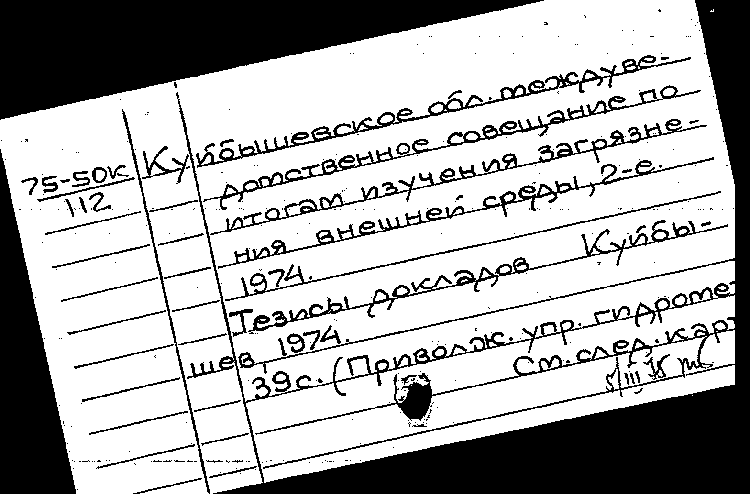 75-50К
112
Куйбышевское обл. междуве-
домственное совещание по
итогам изучения загрязне-
ния внешней среды, 2-е.
1974.
Тезисы докладов Куйбы-
шев, 1974.
39с. (Приволж. упр. гидромет
См. след. карт